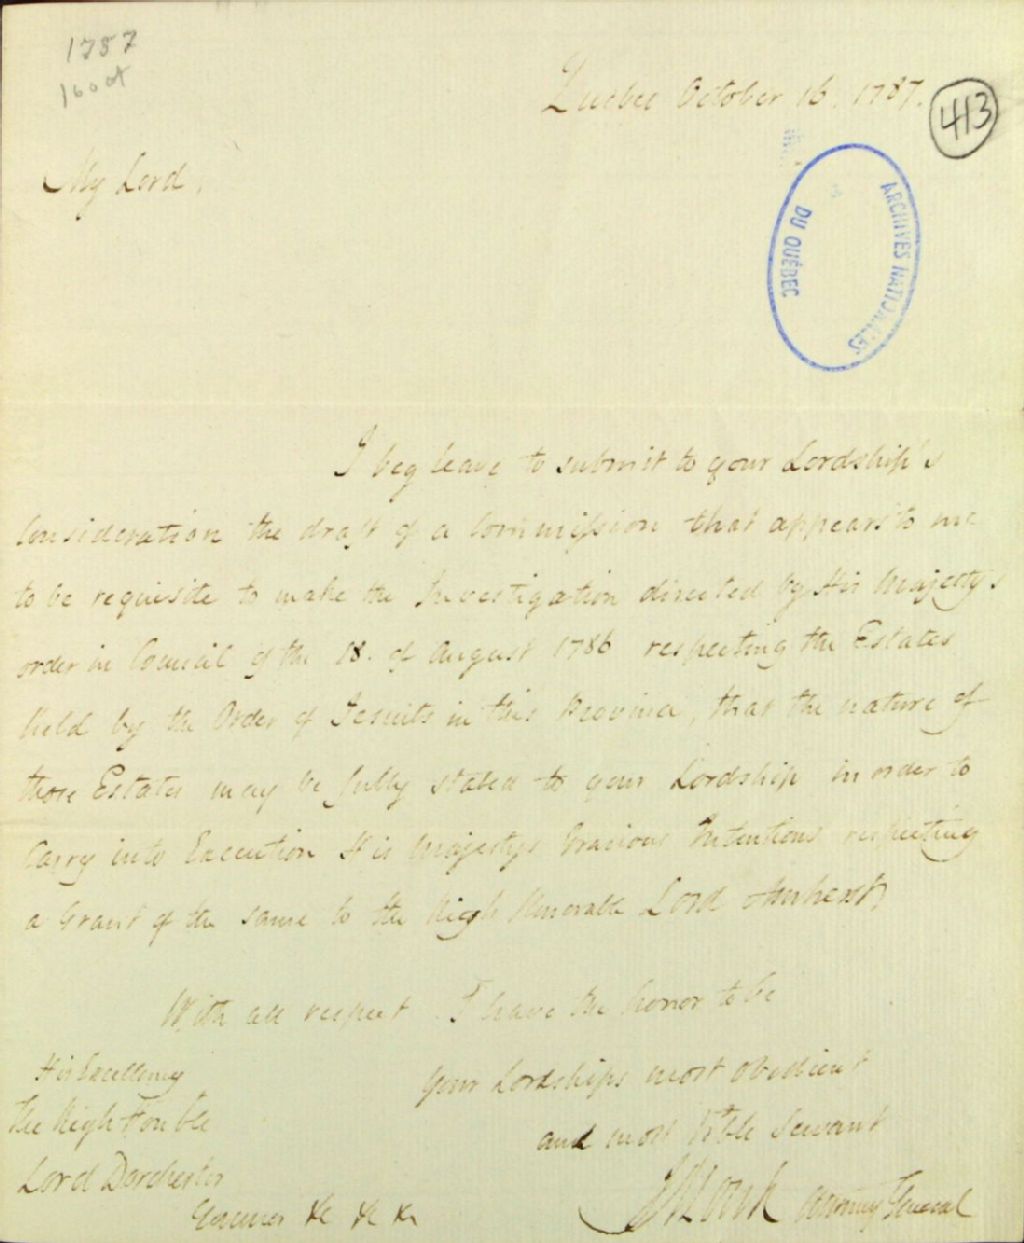 1787
16 oct
Quebec October 16. 1787.
413
My Lord,
ARCHIVES NATIONALES
DU QUÉBEC
I beg leave to submit to your Lordship's
Consideration the draft of a Commission that appears to me
to be requisite to make the Investigation directed by His Majesty's
order in Council of the 18. of August 1786 respecting the Estates
held by the Order of Jesuits in this Province, that the nature of
those Estates may be fully stated to your Lordship in order to
Carry into Execution His Majestys Gracious Intentions respecting
a Grant of the same to the Right Honorable Lord Amherst
With all respect I have the honor to be
Your Lordships most obedient
and most Hble Servant
JMonk Attorney General
His Excellency
The Right Honble
Lord Dorchester
Governor &c &c &c